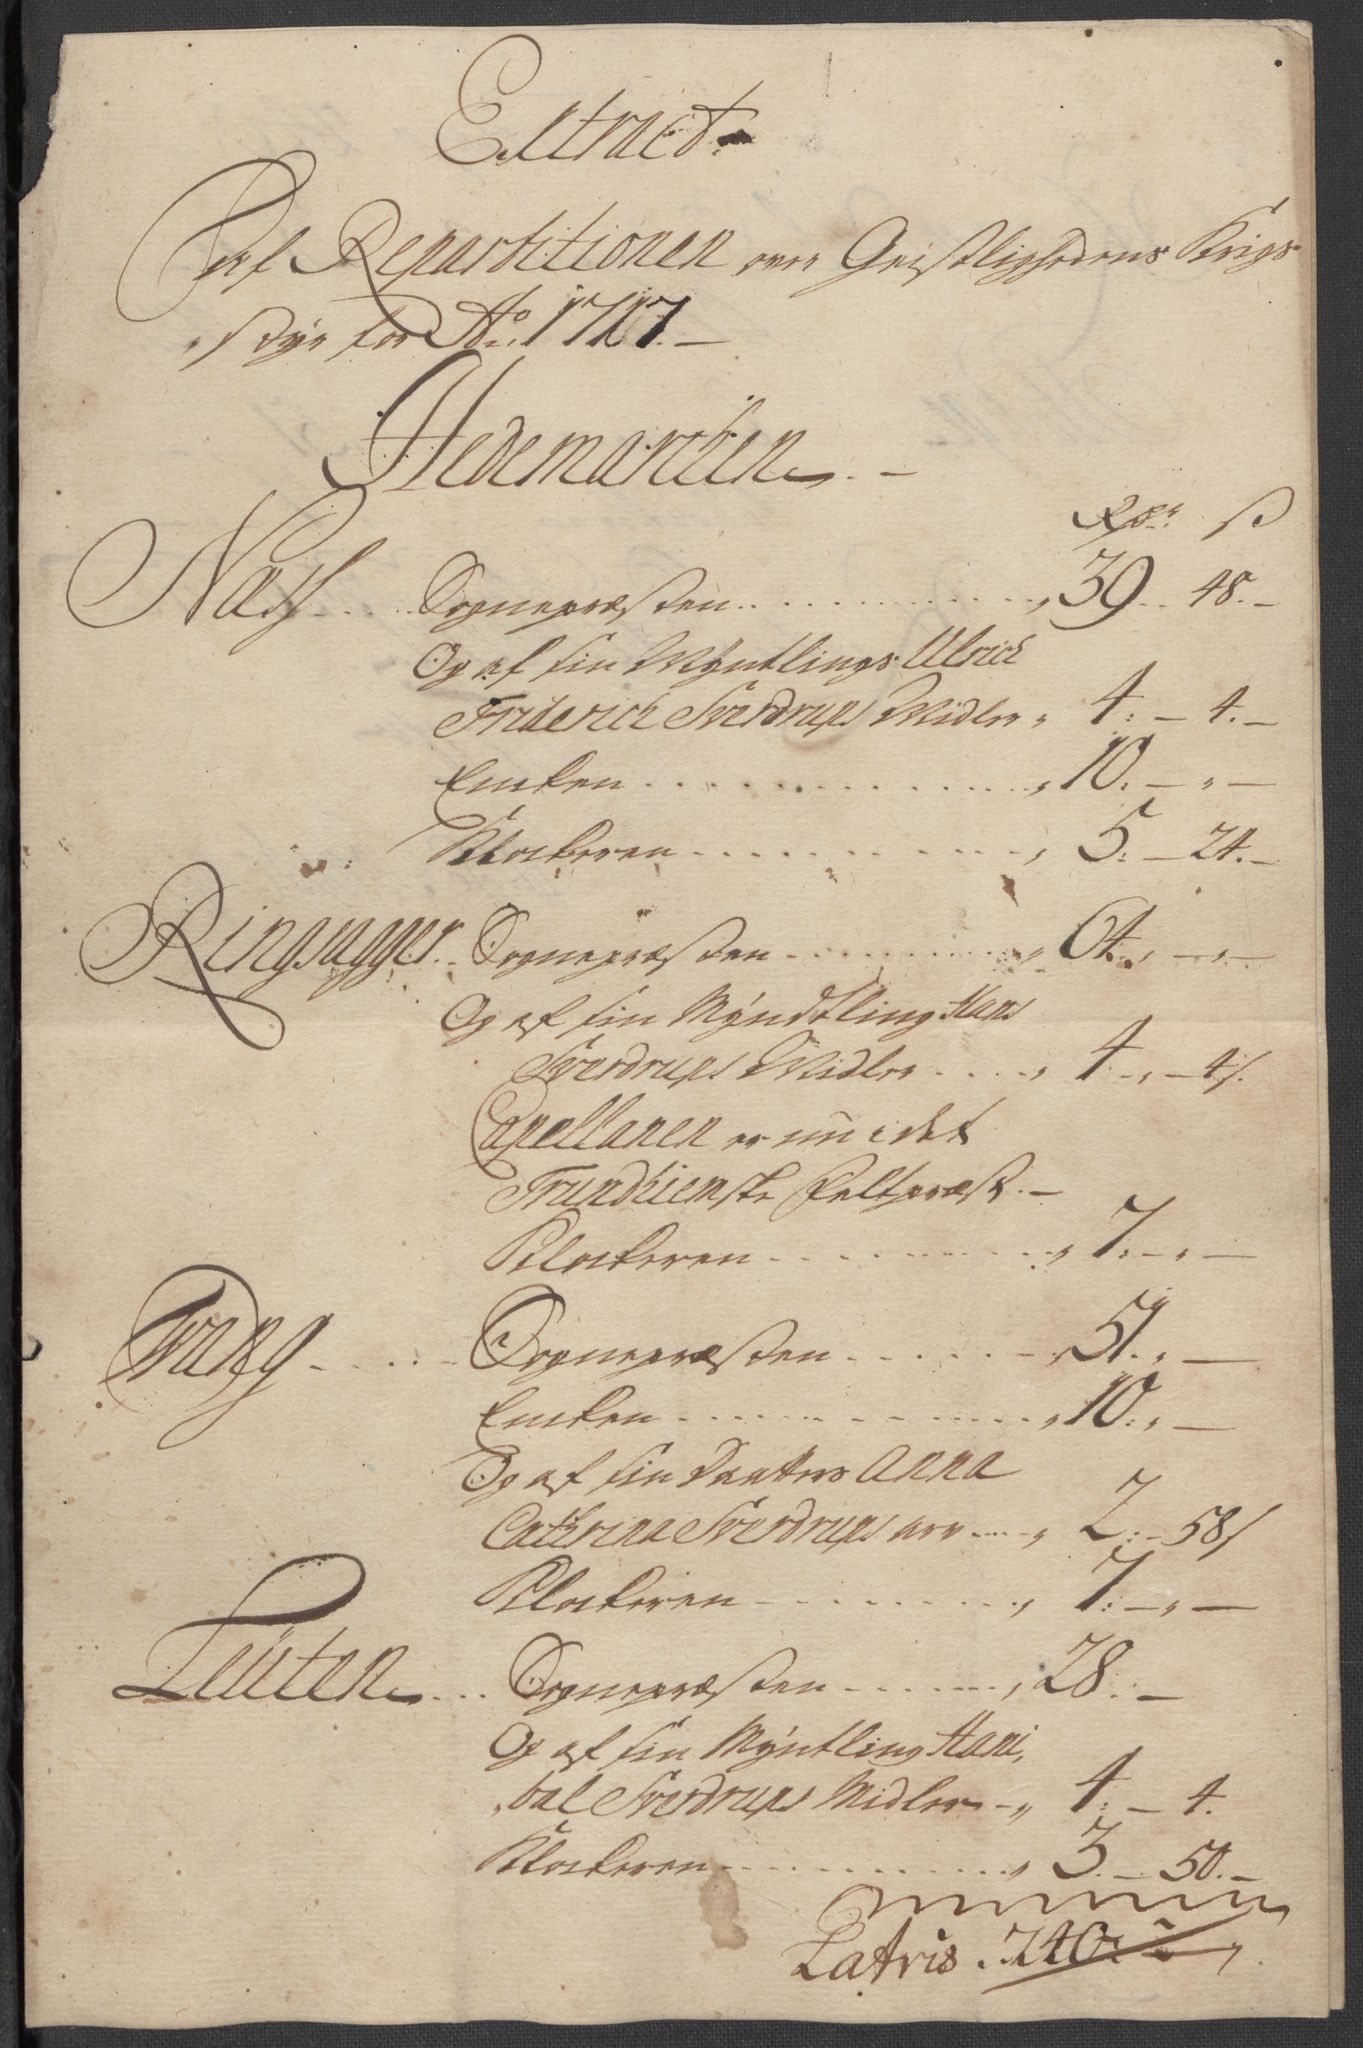 Extract
af Repartitionen over Geistlighedens Krigs-
styr for Ao. 1717. —
Hedemarken. —
Rdr. ß
Næss Sognepræsten 39. 48. —
Og af sin Myntlings Ulrich
Friderich Sverdrups Midler 4. — 4. —
Enken 10. — „ —
Klockeren 5. — 24. —
Ringsagger Sognepræsten 64. „ — „ —
Og af sin Myndtling Hans
Sverdrups Midler 4. „ — 4 ß.
Capellanen er nu i det
Trundhiemske feltpræst. —
Klockeren 7. — „ —
Wang Sognepræsten 51. „ —
Enken 10. „ —
Og af sin Daatters Anna
Cathrina Sverdrups arv 2. — 58 ß
Klockeren 7. — „ —
Leuten Sognepræsten 28. —
Og af sin Myntling Hani-
bal Sverdrups Midler 4. — 4.
Klockeren 3. — 50. —
Latris 240